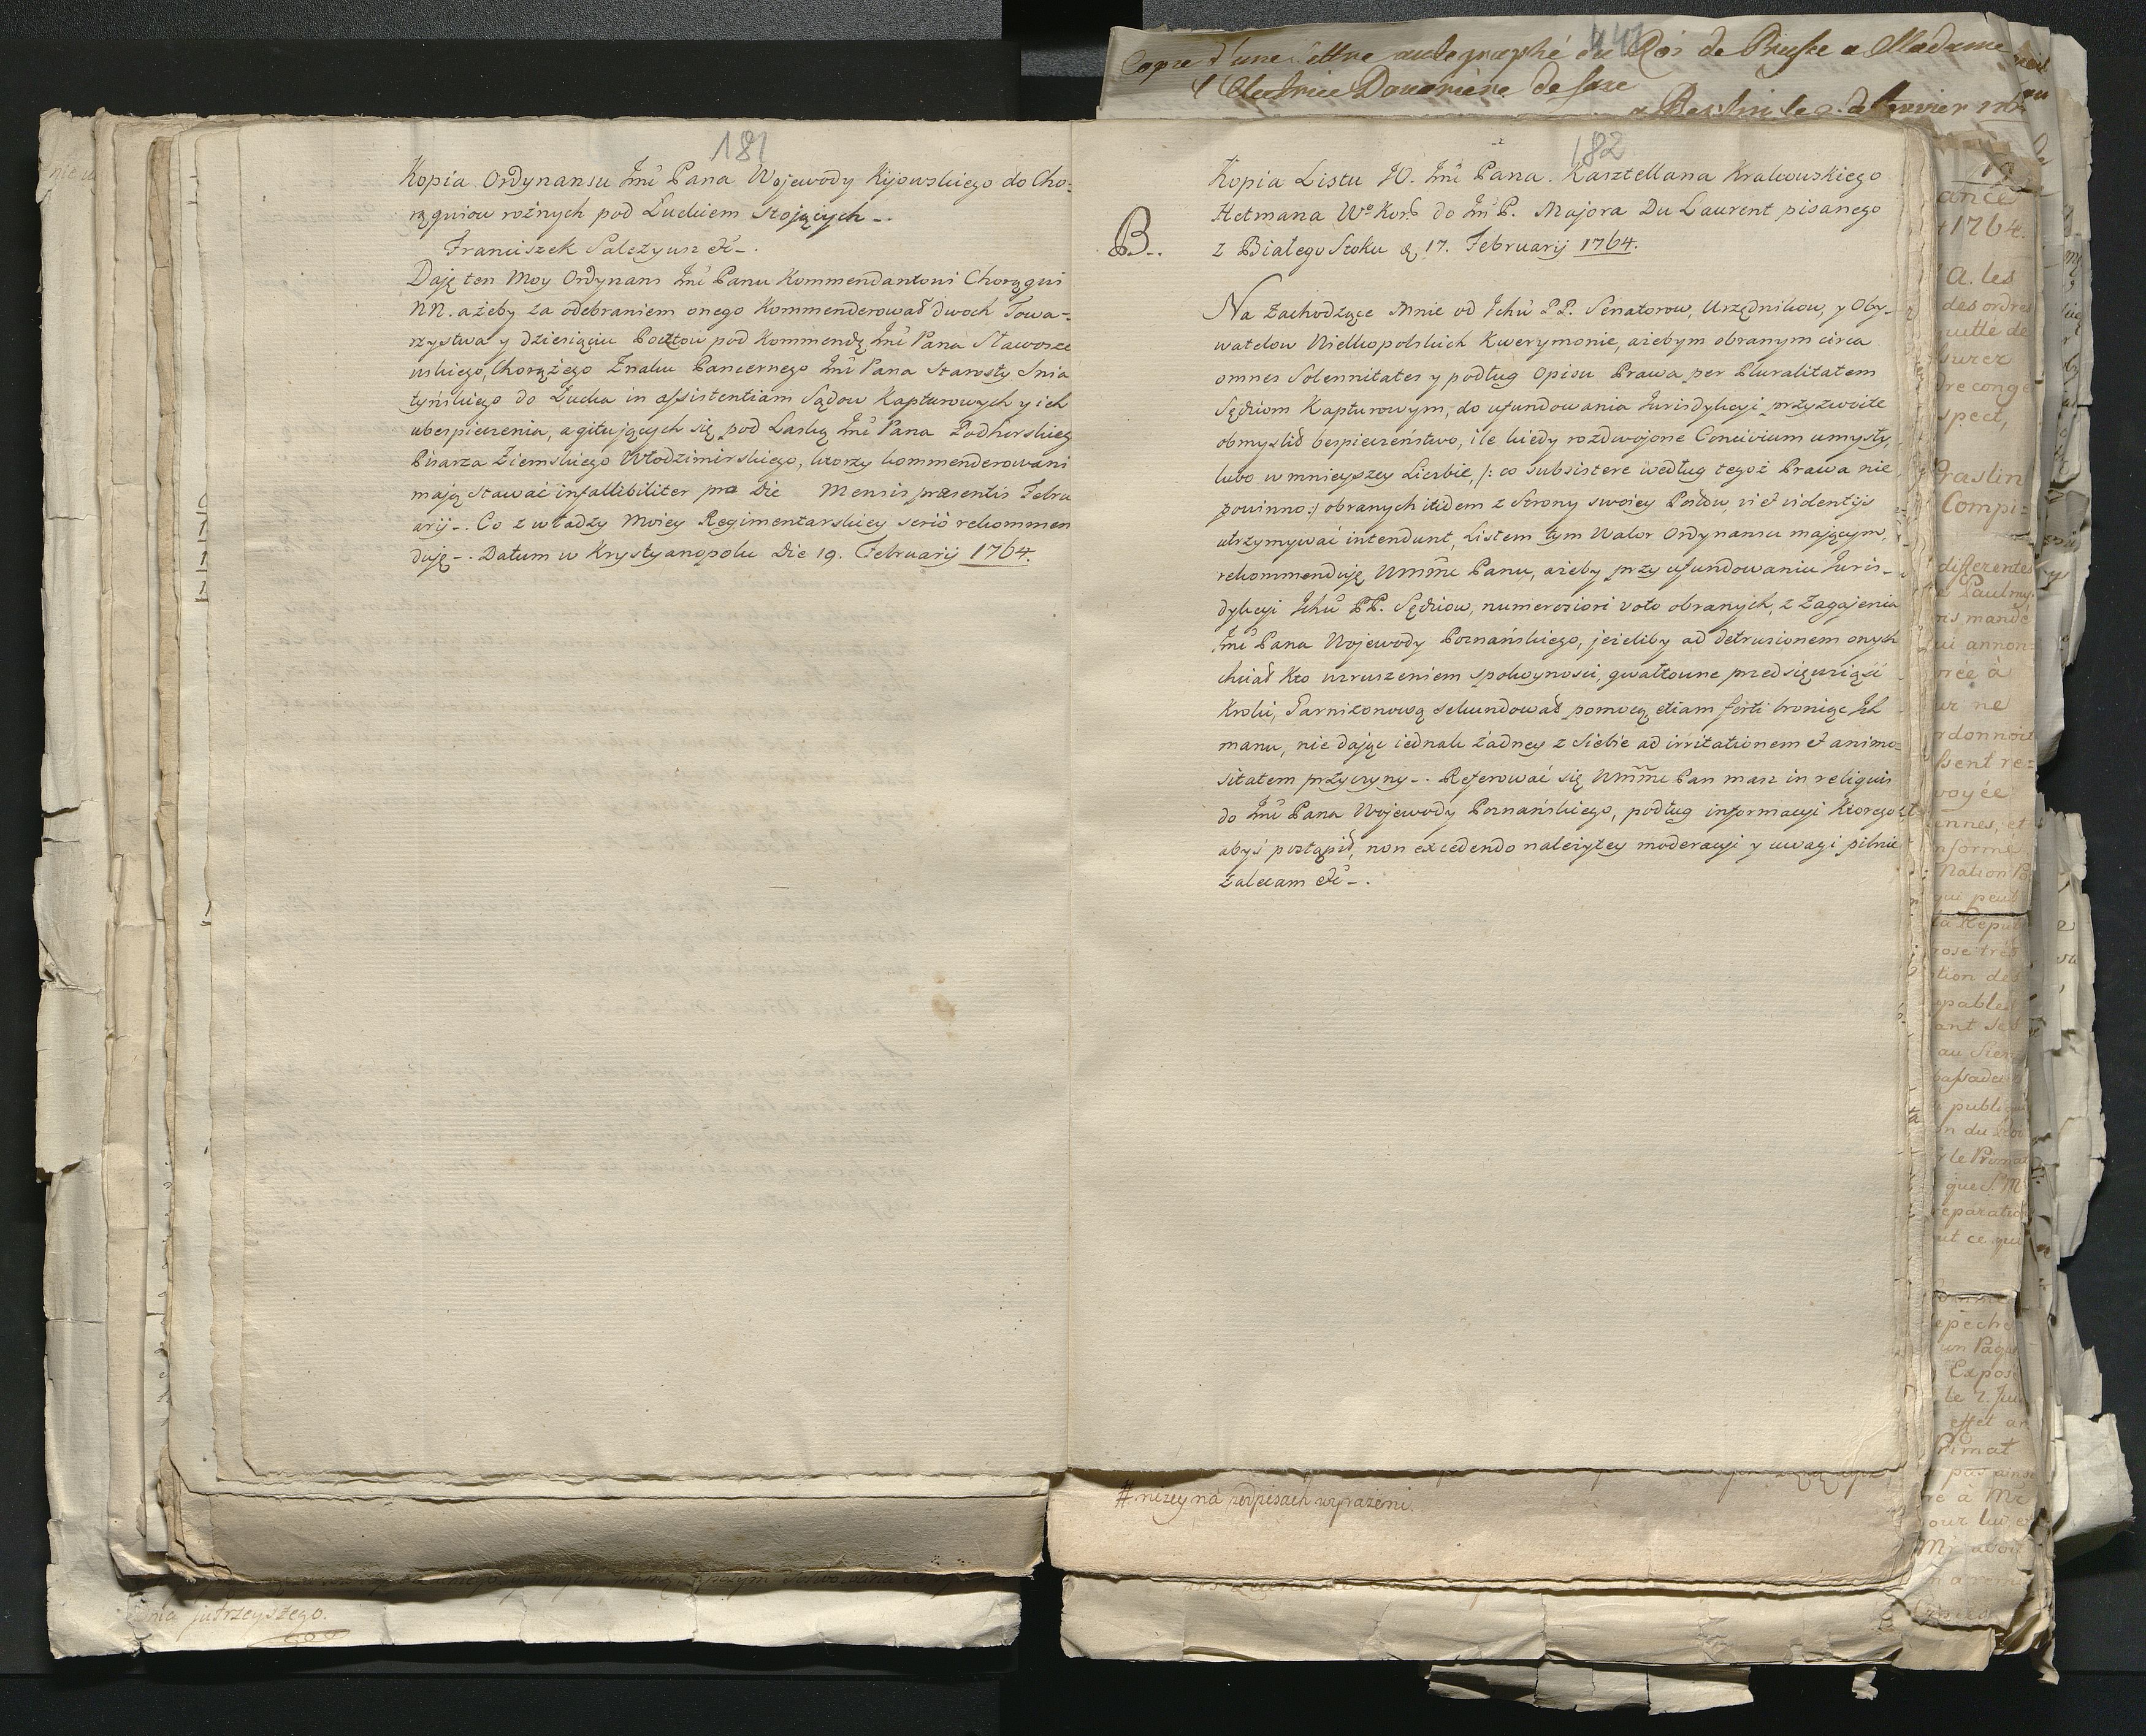 181
Kopia Ordynansu Jmć Pana Wojewody Kijowskiego do Cho-
rągwiow rożnych pod Łuckiem stojących -.
Franciszek Salezyusz &c -.
Daję ten Moy Ordynans Jmć Panu Kommendantowi Chorągwi
NN. ażeby za odebraniem onego Kommenderował dwoch Towa-
rzystwa y dziesięciu Pocztow pod Kommendę Jmć Pana Stawosze
wskiego, Chorążego Znaku Pancernego Jmć Pana Starosty Snia
tyńskiego do Łucka in assistentiam Sądow Kapturowych y ich
ubespieczenia, agitujących się pod Laską Jmć Pana Podhorskieg
Pisarza Ziemskiego Włodzimirskiego, ktorzy kommenderowani
mają stawać infallibiliter pro Die Mensis præsentis Febru
arij -. Co z władzy Moiey Regimentarskiey serió rekommen
duję -. Datum w Krystyanopolu Die 19. Februarij 1764.
182
B..
Kopia Listu W. Jmć Pana Kasztellana Krakowskiego
Hetmana Wo Kor. do Jmć P. Majora Du Laurent pisanego
z Białego Stoku d. 17. Februarij 1764.
Na zachodzące Mnie od Ichć PP. Senatorow, Urzędnikow, y Oby-
watelow Wielkopolskich Kwerymonie, ażebym obranym circa
omnes Solennitates y podług Opisu Prawa per Pluralitatem
Sędziom Kapturowym, do ufundowania Jurisdykcyi przyzwoite
obmyslił bespieczeństwo, ile kiedy rozdwojone Concivium umysły,
lubo w mnieyszey Liczbie, /: co subsistere według tegoż Prawa nie
powinno:/ obranych itidem z Strony swoiey Posłow, vi et videntijs
utrzymywać intendunt, Listem tym Walor Ordynansu mającym,
rekommenduję Wmmć Panu, ażeby przy ufundowaniu Juris-
dykcyi Ichć PP. Sędziow, numerosiori voto obranych, z Zagajenia
Jmć Pana Wojewody Poznańskiego, jeżeliby ad detrusionem onych
chciał kto wzruszeniem spokoynosci, gwałtowne przedsięwziąść
kroki, Garnizonową sekundował pomocą, etiam forti broniąc Ich
manu, nie dając iednak żadney z Siebie ad irritationem et animo-
sitatem przyczyny -. Referować się Wmmć Pan masz in reliquis
do Jmć Pana Wojewody Poznańskiego, podług informacyi ktorego
abyś postąpił, non excedendo należytey moderacyi y uwagi pilnie
zalecam &c -.
Copie d'une lettre autographé du Roi de Prusse a Madame
l'Electrice Douariere de saxe
a Berlin le 9. de Janvier
ance
1764.
A. les
des ordres
spect,
Praslin
Compi=
differentes
Paulmy.
mandé
annon=
ne
voyée
Nation
qui peut
publi
le Primat
que S. M
reparatio
ce qui
un
Expos
effet
Primat
à Mr
# niżey na podpisach wyrażeni.
jutrzeyszego.